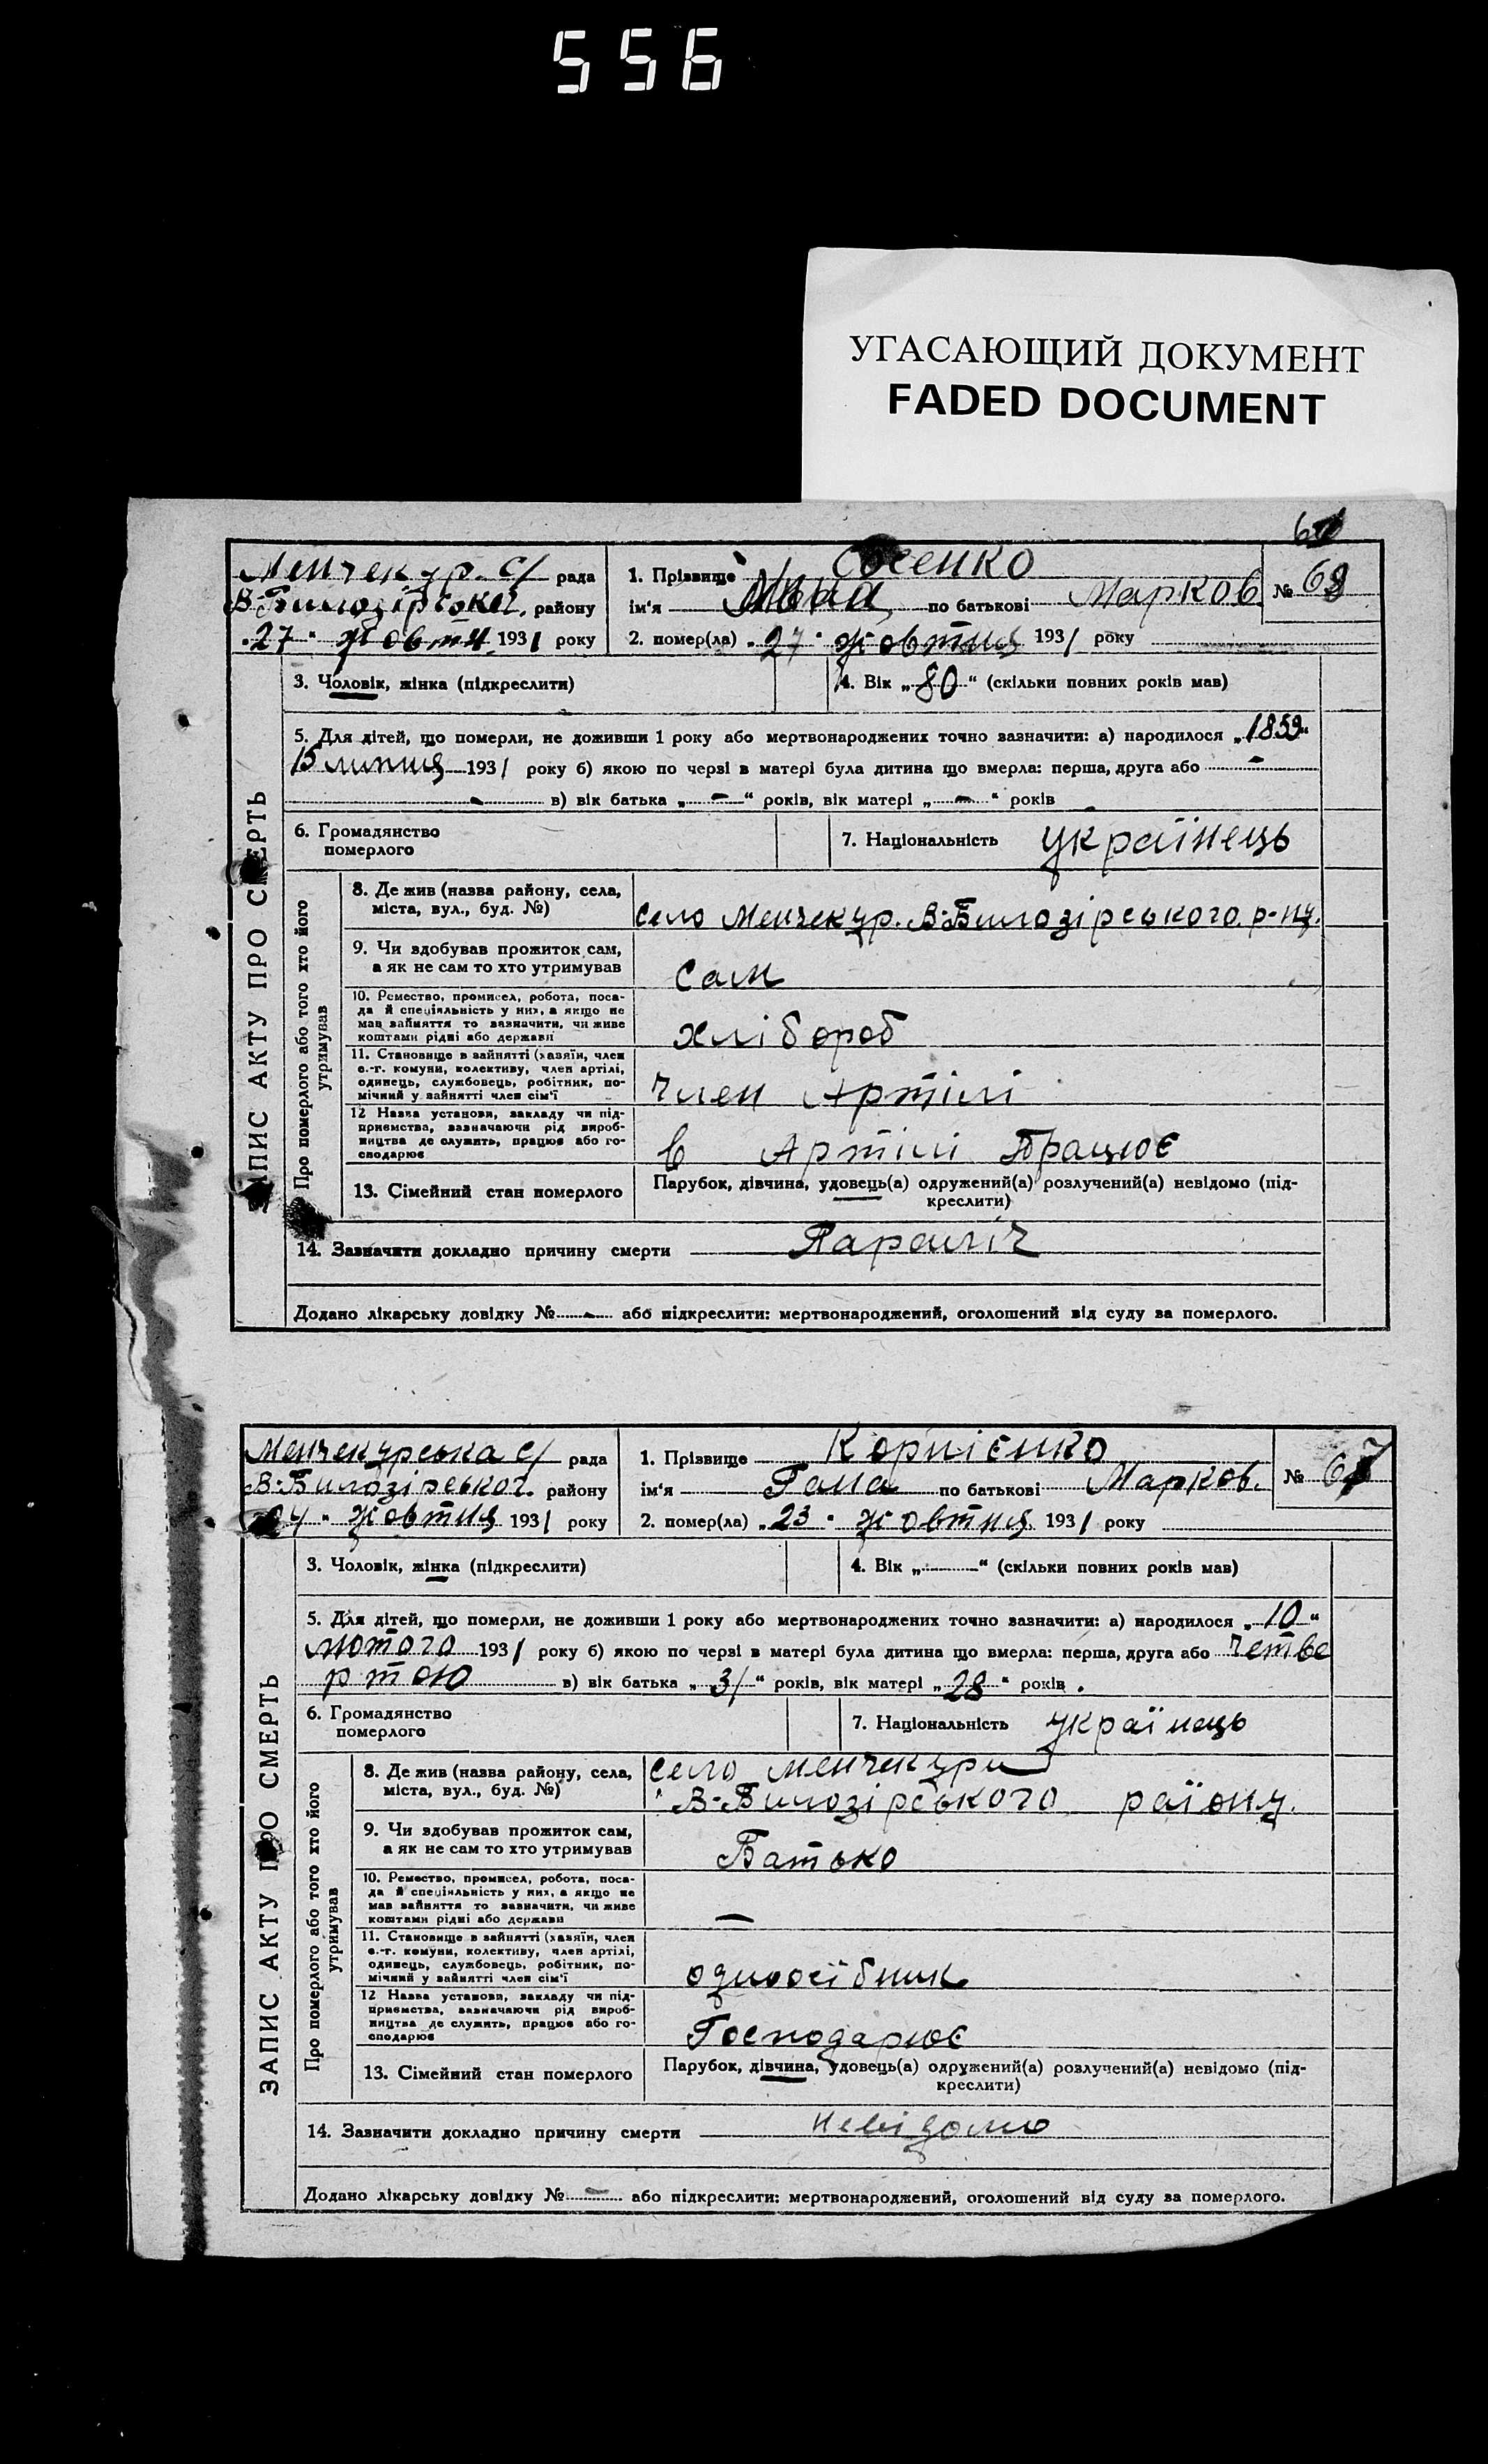 556
УГАСАЮЩИЙ ДОКУМЕНТ
FADED DOCUMENT
Менчекур. с/ рада
В-Билозірської району
„27" жовтн. 1931 року
1. Прізвище Собенко
ім'я по батькові Марков
№ 68
2. помер(ла) „27" жовтня 1931 року
3. Чоловік, жінка (підкреслити)
4. Вік „80" (скільки повних років мав)
5. Для дітей, що померли, не доживши 1 року або мертвонароджених точно зазначити: а) народилося „1859"
15 липня 1931 року б) якою по черзі в матері була дитина що вмерла: перша, друга або -
- в) вік батька „-" років, вік матері „-" років
6. Громадянство
померлого
7. Національність українець
ЗАПИС АКТУ ПРО СМЕРТЬ
Про померлого або того хто його
утримував
8. Де жив (назва району, села,
міста, вул., буд. №)
село Менчекур. В-Билозірського р-ну.
9. Чи здобував прожиток сам,
а як не сам то хто утримував
сам
10. Ремество, промисел, робота, поса-
да й спеціяльність у них, а якщо не
мав зайняття то зазначити, чи живе
коштами рідні або держави
хлібороб
11. Становище в зайнятті (хазяїн, член
с.-г. комуни, колективу, член артілі,
одинець, службовець, робітник, по-
мічний у зайнятті член сім'ї
член Артілі
12 Назва установи, закладу чи під-
приємства, зазначаючи рід вироб-
ництва де служить, працює або го-
сподарює
в Артілі Працює
13. Сімейний стан померлого
Парубок, дівчина, удовець(а) одружений(а) розлучений(а) невідомо (під-
креслити)
14. Зазначити докладно причину смерти Параліч
Додано лікарську довідку №- або підкреслити: мертвонароджений, оголошений від суду за померлого.
Менчекурська с/ рада
В-Билозірськог. району
24" жовтня 1931 року
1. Прізвище Корнієнко
ім'я Гана по батькові Марков.
№ 67
2. помер(ла) „23" жовтня 1931 року
3. Чоловік, жінка (підкреслити)
4. Вік „ " (скільки повних років мав)
5. Для дітей, що померли, не доживши 1 року або мертвонароджених точно зазначити: а) народилося „10"
лютого 1931 року б) якою по черзі в матері була дитина що вмерла: перша, друга або четве
ртою в) вік батька „31" років, вік матері „28" років.
6. Громадянство
померлого
7. Національність українець
ЗАПИС АКТУ ПРО СМЕРТЬ
Про померлого або того хто його
утримував
8. Де жив (назва району, села,
міста, вул., буд. №)
село Менчекури
В-Билозірського раїону.
9. Чи здобував прожиток сам,
а як не сам то хто утримував
Батько
10. Ремество, промисел, робота, поса-
да й спеціяльність у них, а якщо не
мав зайняття то зазначити, чи живе
коштами рідні або держави
—
11. Становище в зайнятті (хазяїн, член
с.-г. комуни, колективу, член артілі,
одинець, службовець, робітник, по-
мічний у зайнятті член сім'ї
одноосібник
12 Назва установи, закладу чи під-
приємства, зазначаючи рід вироб-
ництва де служить, працює або го-
сподарює
Господарює
13. Сімейний стан померлого
Парубок, дівчина, удовець(а) одружений(а) розлучений(а) невідомо (під-
креслити)
14. Зазначити докладно причину смерти невідомо
Додано лікарську довідку №- або підкреслити: мертвонароджений, оголошений від суду за померлого.